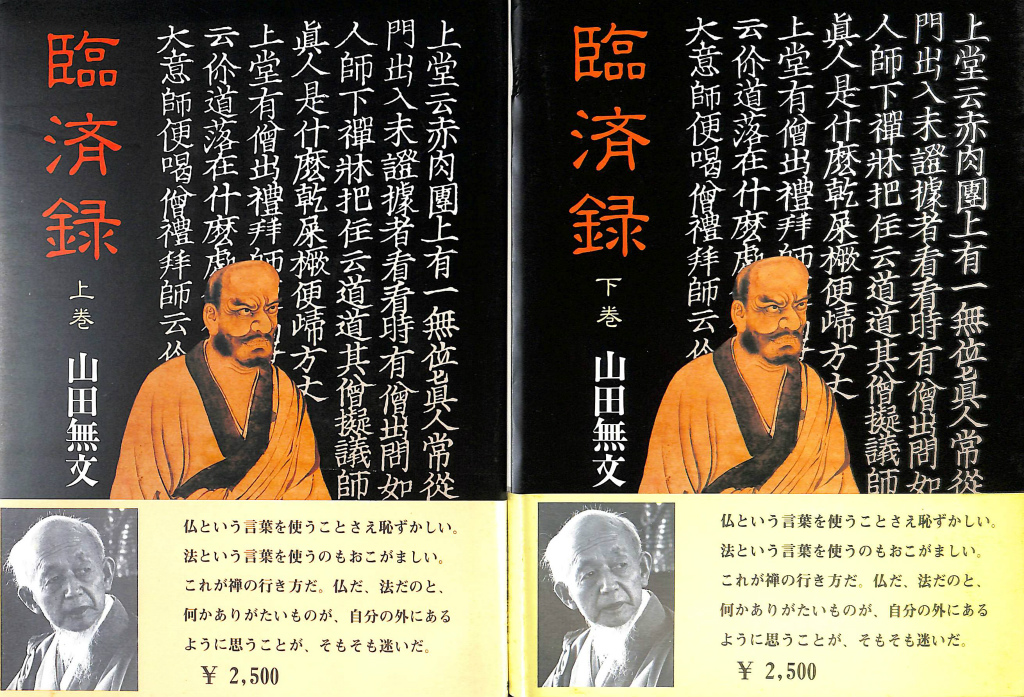 臨済録
上巻
山田無文
上堂云赤肉團上有一無位眞人常從
門出入未證據者看看時有僧出問如
人師下禪牀把住云道道其僧擬議師
眞人是什麼乾屎橛便歸方丈
上堂有僧出禮拜師
云伱道落在什麼處
大意師便喝僧禮拜師云
仏という言葉を使うことさえ恥ずかしい。
法という言葉を使うのもおこがましい。
これが禅の行き方だ。仏だ、法だのと、
何かありがたいものが、自分の外にある
ように思うことが、そもそも迷いだ。
¥ 2,500
臨済録
下巻
山田無文
上堂云赤肉團上有一無位眞人常從
門出入未證據者看看時有僧出問如
人師下禪牀把住云道道其僧擬議師
眞人是什麼乾屎橛便歸方丈
上堂有僧出禮拜師
云伱道落在什麼處
大意師便喝僧禮拜師云
仏という言葉を使うことさえ恥ずかしい。
法という言葉を使うのもおこがましい。
これが禅の行き方だ。仏だ、法だのと、
何かありがたいものが、自分の外にある
ように思うことが、そもそも迷いだ。
¥ 2,500